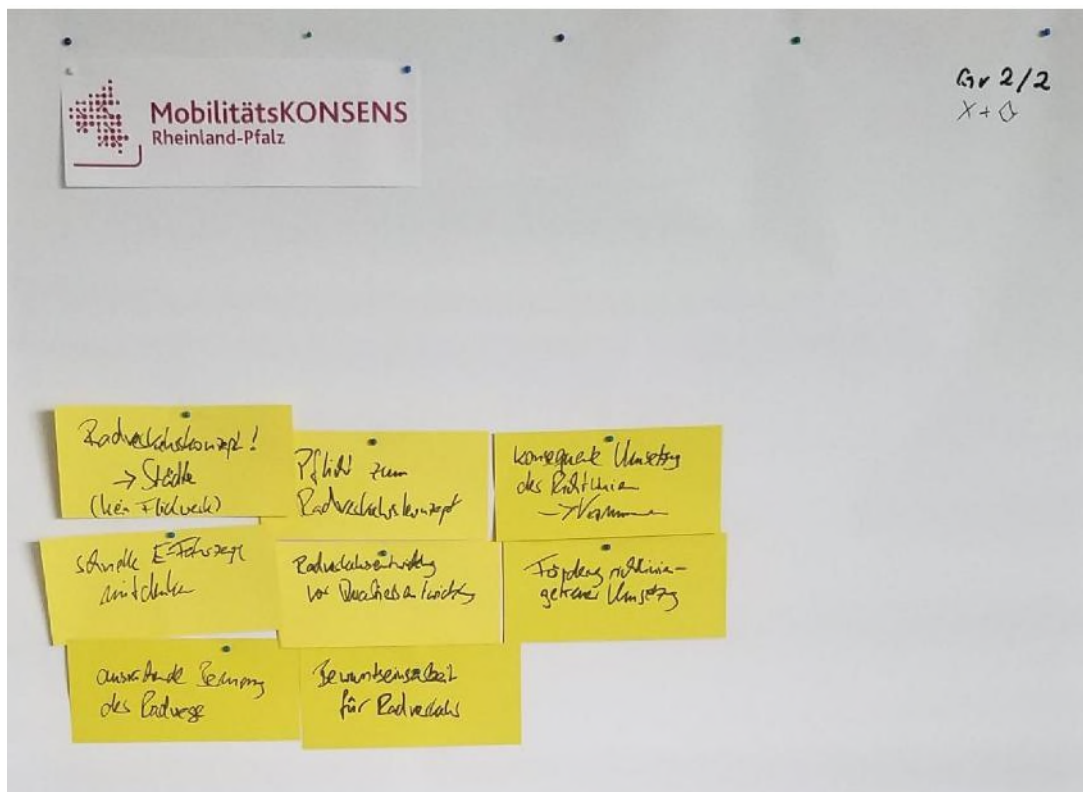 MobilitätsKONSENS
Rheinland-Pfalz
Gr 2/2
Radverkehrskonzept!
→ Städte
(kein Flickwerk)
Pflicht zum
Radverkehrskonzept
konsequente Umsetzung
des Richtlinien
→
schnelle E-Fahrzeuge
mitdenken
Radverkehrsentwicklung
vor
Förderung richtlinien-
getreuer Umsetzung
ausreichende Bemessung
des Radwege
Bewusstseinsarbeit
für Radverkehr